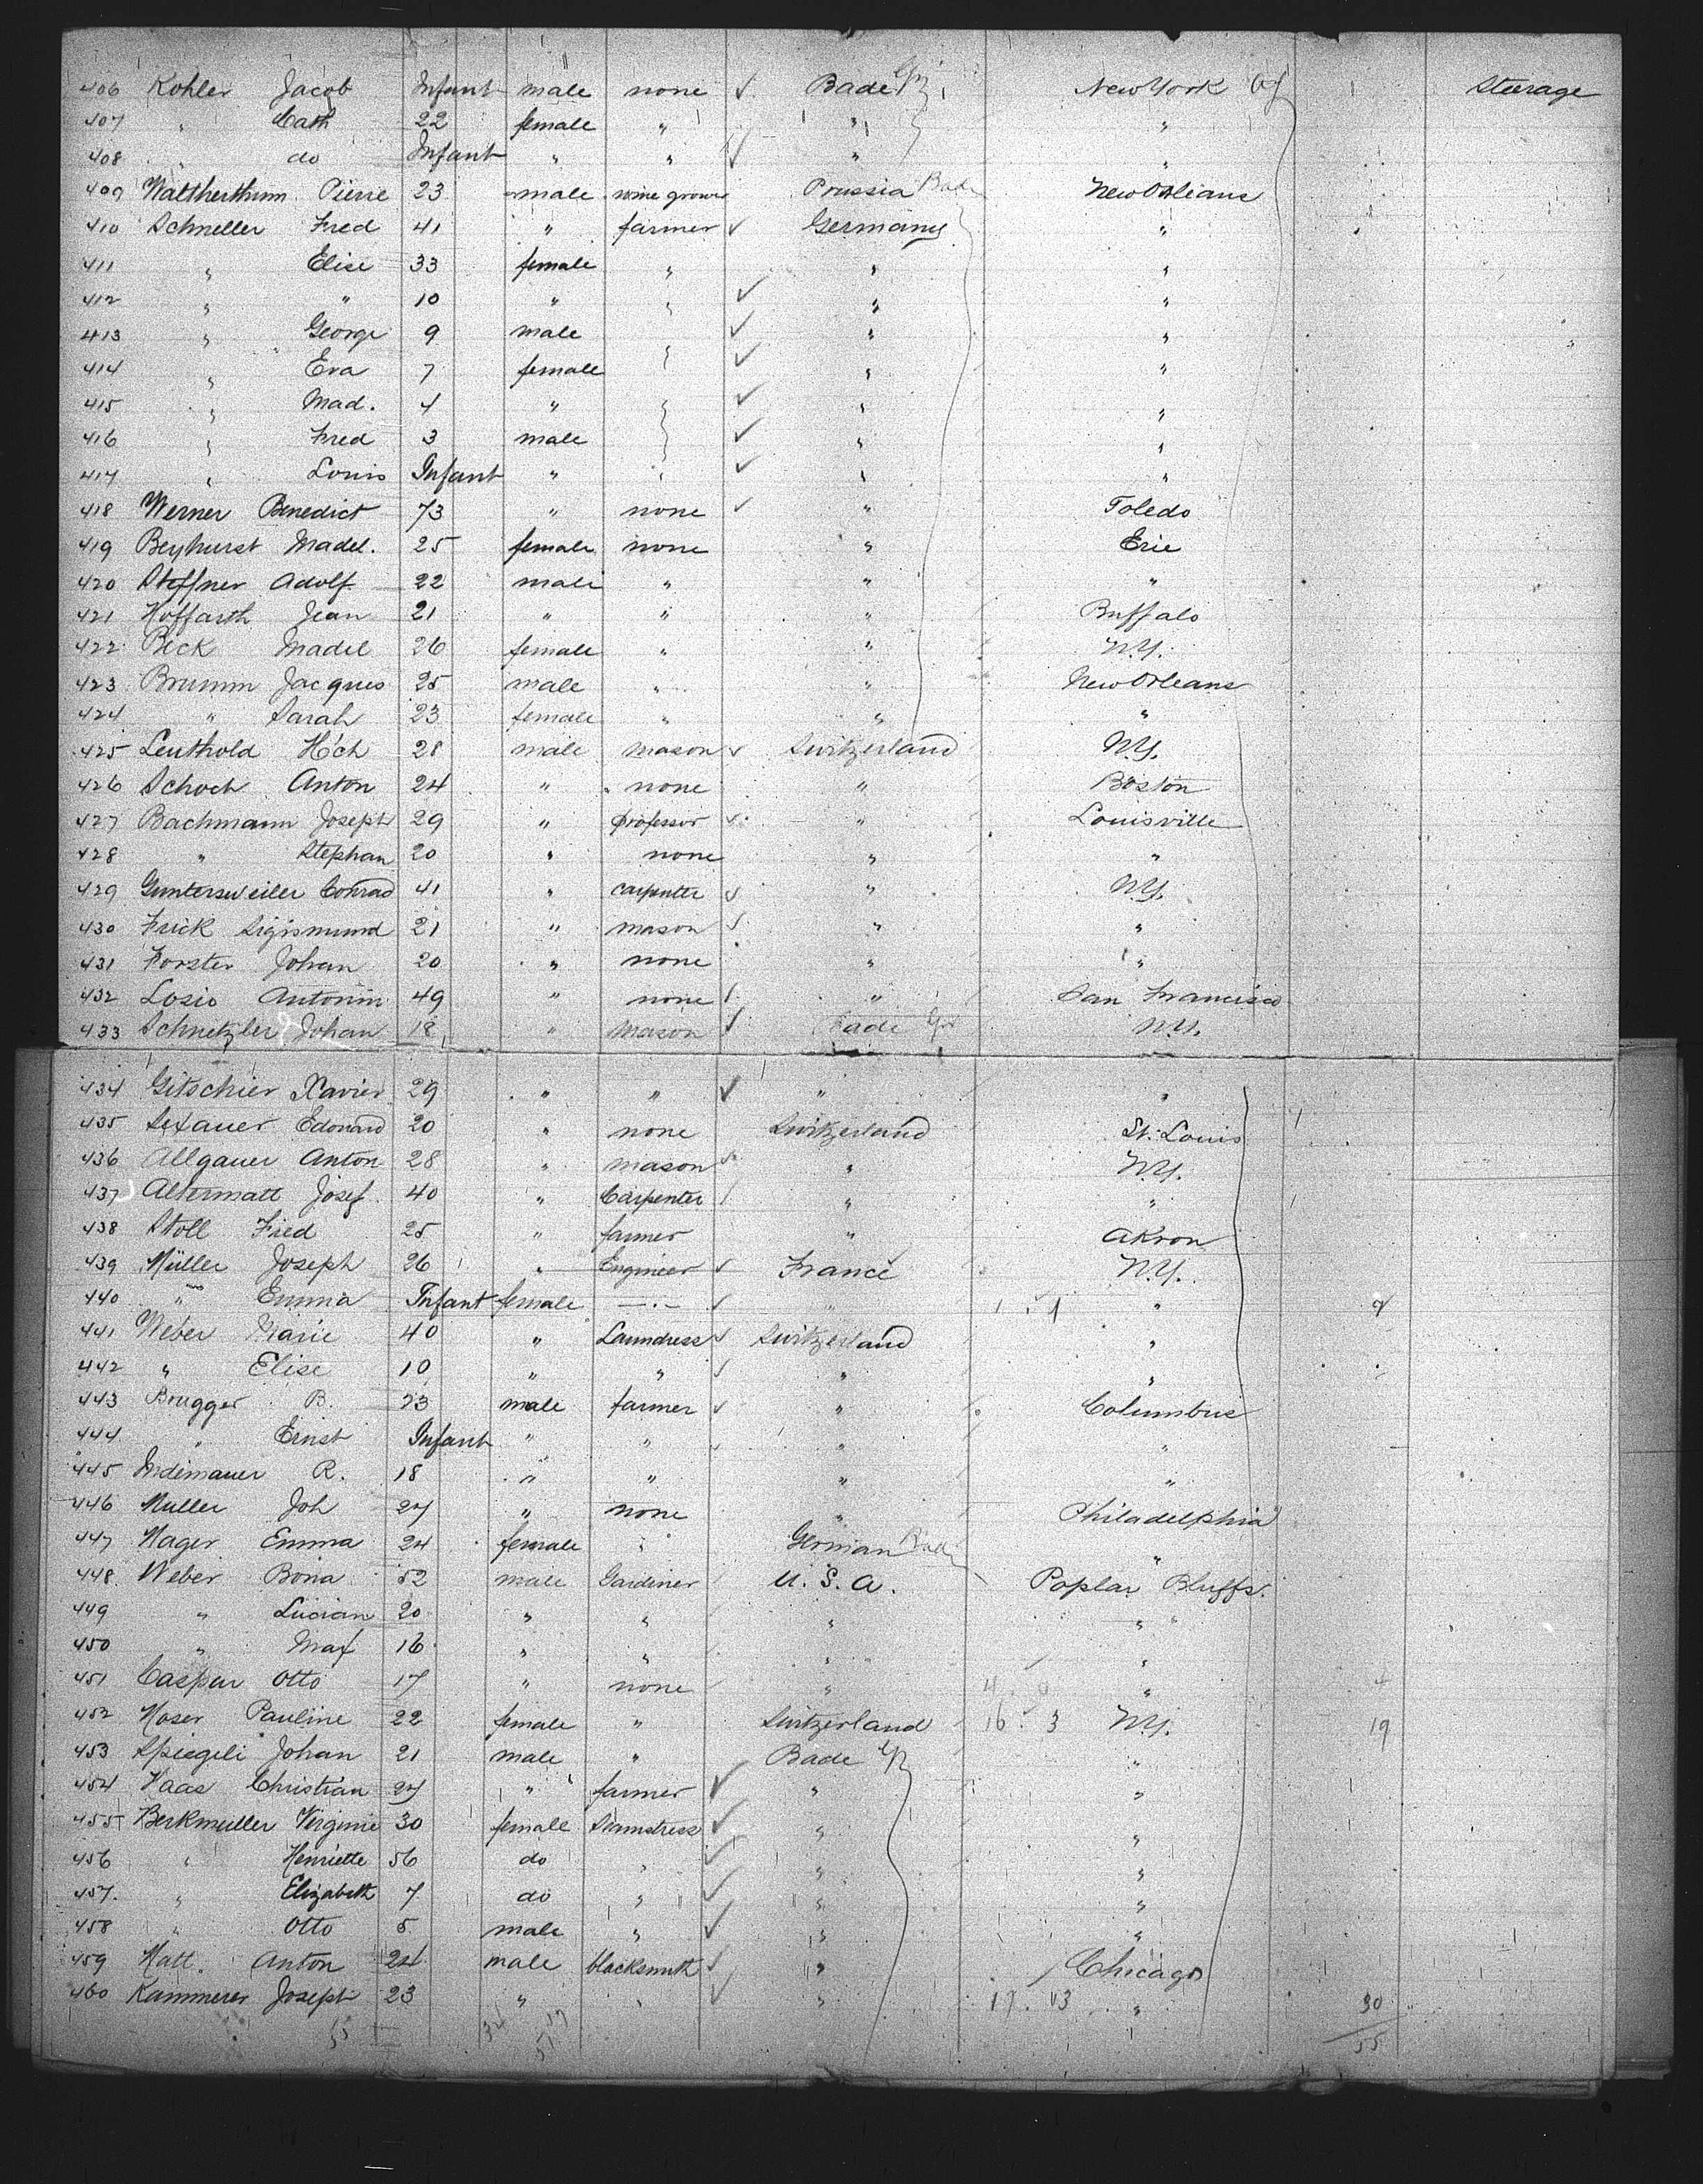 406 Kohler Jacob Infant male none ✓ Bade New York Steerage
407 " Cath 22 female " " "
408 " do Infant " " ✓ " "
409 Waltherthum Pierre 23 male wine grower Prussia Bade New Orleans
410 Schneller Fred 41 " farmer ✓ Germany "
411 " Elise 33 female " " "
412 " " 10 " " ✓ " "
413 " George 9 male ✓ " "
414 " Eva 7 female ✓ " "
415 " Mad. 4 " ✓ " "
416 " Fred 3 male ✓ " "
417 " Louis Infant " " ✓ " "
418 Werner Benedict 73 " none ✓ " Toledo
419 Beyhurst Madel. 25 female none " Erie
420 Steffner Adolf 22 male " " "
421 Hoffarth Jean 21 " " " Buffalo
422 Beck Madel 26 female " " N.Y.
423 Brumm Jacques 25 male " " New Orleans
424 " Sarah 23 female " " "
425 Leuthold Hch 28 male mason ✓ Switzerland N.Y.
426 Schoch Anton 24 " none " Boston
427 Bachmann Joseph 29 " professor ✓ " Louisville
428 " Stephan 20 " none " "
429 Guntersweiler Conrad 41 " carpenter ✓ " N.Y.
430 Frick Sigismund 21 " mason ✓ " "
431 Forster Johan 20 " none " "
432 Losio Antonin 49 " none " San Francisco
433 Schnetzler Johan 18 " mason ✓ Bade N.Y.
434 Gitschier Xavier 29 " " ✓ " "
435 Sexauer Edouard 20 " none Switzerland St. Louis
436 Allgauer Anton 28 " mason ✓ " N.Y.
437 Altermatt Josef 40 " Carpenter " "
438 Stoll Fred 25 " farmer " Akron
439 Müller Joseph 26 " Engineer ✓ France N.Y.
440 " Emma Infant female —.— ✓ " "
441 Weber Marie 40 " Laundress ✓ Switzerland "
442 " Elise 10 " " ✓ " "
443 Brugger B. 23 male farmer ✓ " Columbus
444 " Ernst Infant " " " "
445 Indimauer R. 18 " " " "
446 Muller Joh 27 " none " Philadelphia
447 Hager Emma 24 female " German Bade "
448 Weber Bona 52 male Gardiner U.S.A. Poplar Bluffs.
449 " Lucian 20 " " " "
450 " Max 16 " " " "
451 Caspar Otto 17 " none " 4 "
452 Moser Pauline 22 female " Switzerland 16 3 N.Y. 19
453 Spiegeli Johan 21 male " Bade "
454 Haas Christian 27 " farmer ✓ " "
455 Berkmuller Virginie 30 female Seamstress ✓ " "
456 " Henriette 56 do " ✓ " "
457. " Elizabeth 7 do " ✓ " "
458 " Otto 5 male " ✓ " "
459 Matt. Anton 24 male blacksmith ✓ " Chicago
460 Kammerer Joseph 23 " " ✓ " 17 13 " 30
55 34 17 55
51